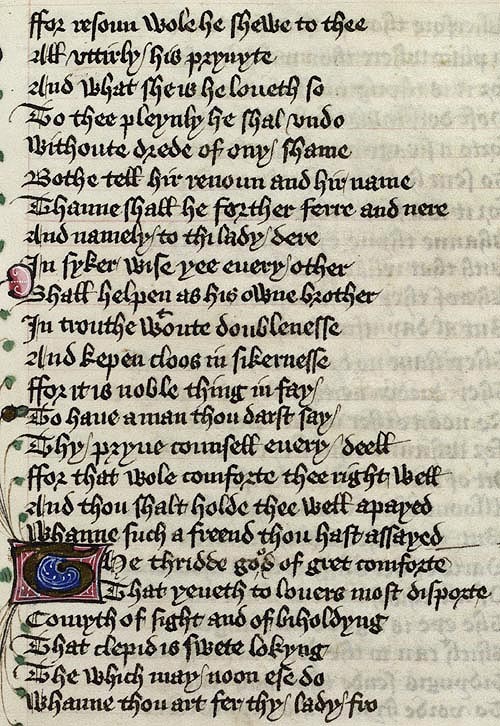 ffor resoun wole he shewe to thee
All vttirly his pryuyte
And what she is he loueth so
To thee pleynly he shal vndo
Withoute drede of ony shame
Bothe tell hir renoun and hir name
Thanne shall he forther ferre and nere
And namely to thi lady dere
In syker wise yee euery other
Shall helpen as his owne brother
In trouthe wtoute doublenesse
And kepen cloos in sikernesse
ffor it is noble thing in fay
To haue a man thou darst say
Thy pryue counsell euery deell
ffor that wole comforte thee right well
And thou shalt holde thee well apayed
Whanne such a freend thou hast assayed
The thridde good of gret comforte
That yeueth to louers most disporte
Comyth of sight and of biholdyng
That clepid is swete lokyng
The which may noon ese do
Whanne thou art fer thy lady fro